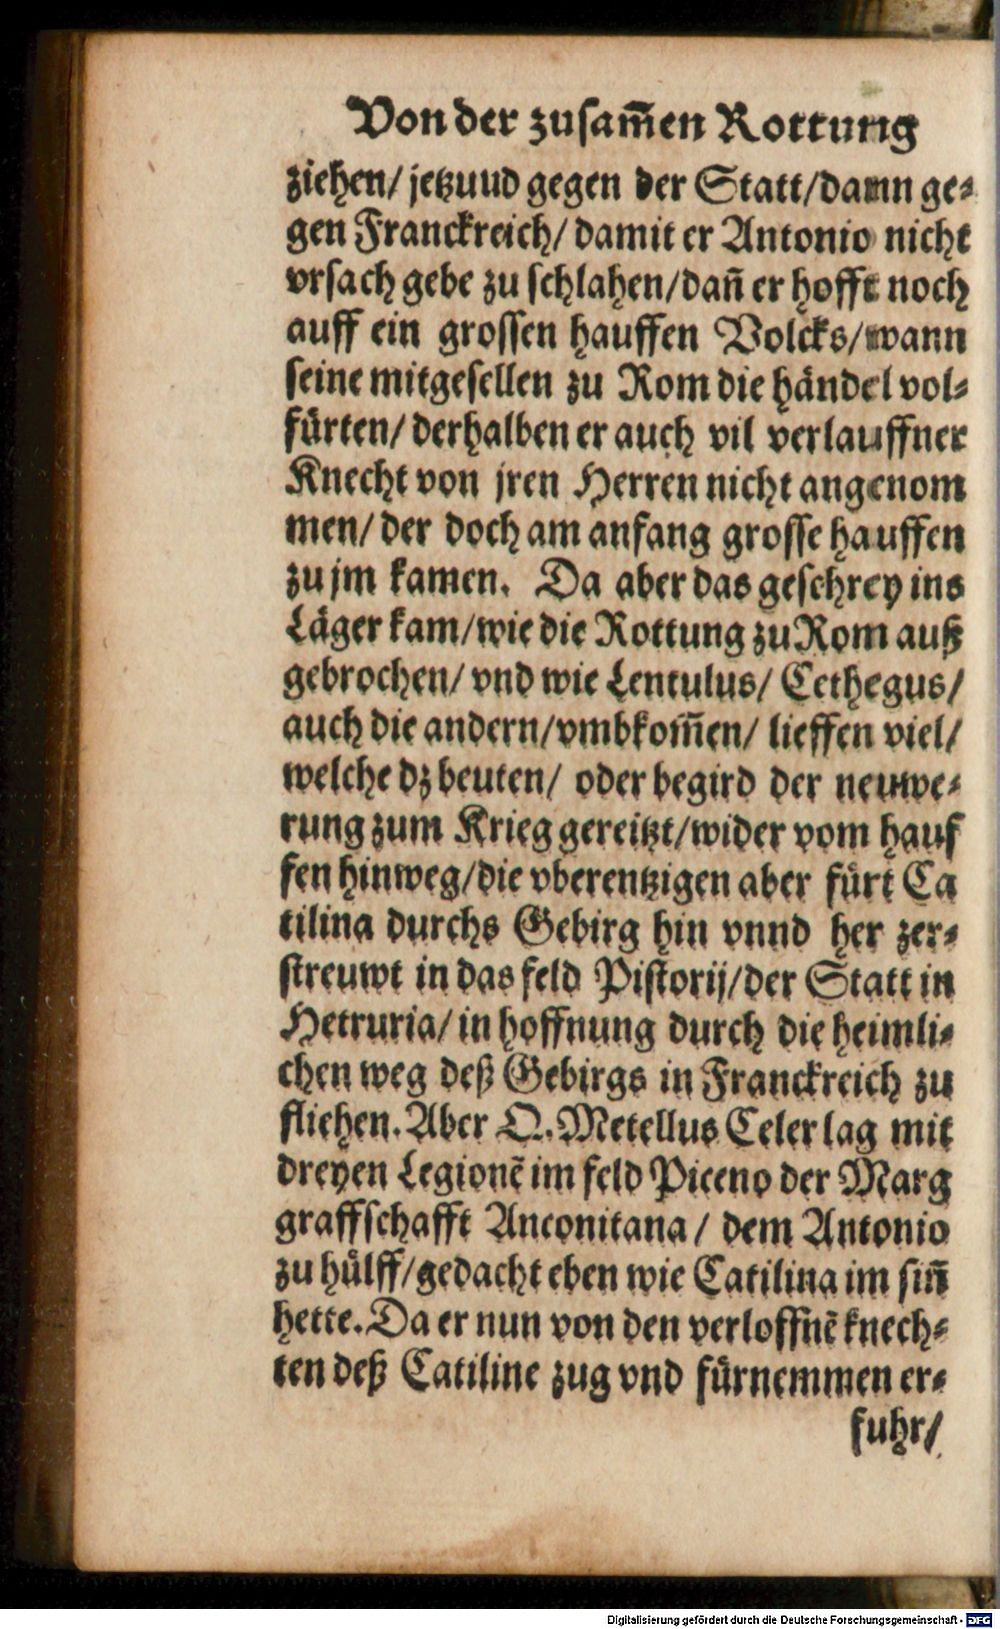 Von der zusam̃en Rottung
ziehen/ jetzuud gegen der Statt/ dann ge-
gen Franckreich/ damit er Antonio nicht
vrsach gebe zu schlahen/ dañ er hofft noch
auff ein grossen hauffen Volcks/ wann
seine mitgesellen zu Rom die händel vol-
fürten/ derhalben er auch vil verlauffner
Knecht von jren Herren nicht angenom
men/ der doch am anfang grosse hauffen
zu jm kamen. Da aber das geschrey ins
Läger kam/ wie die Rottung zu Rom auß
gebrochen/ vnd wie Lentulus/ Cethegus/
auch die andern/ vmbkom̃en/ lieffen viel/
welche dz beuten/ oder begird der neuwe-
rung zum Krieg gereitzt/ wider vom hauf
fen hinweg/ die vberentzigen aber fürt Ca
tilina durchs Gebirg hin vnnd her zer-
streuwt in das feld Pistorij/ der Statt in
Hetruria/ in hoffnung durch die heimli-
chen weg deß Gebirgs in Franckreich zu
fliehen. Aber Q. Metellus Celer lag mit
dreyen Legionẽ im feld Piceno der Marg
graffschafft Anconitana/ dem Antonio
zu hülff/ gedacht eben wie Catilina im siñ
hette. Da er nun von den verloffnẽ knech-
ten deß Catiline zug vnd fürnemmen er-
fuhr/
Digitalisierung gefördert durch die Deutsche Forschungsgemeinschaft - DFG